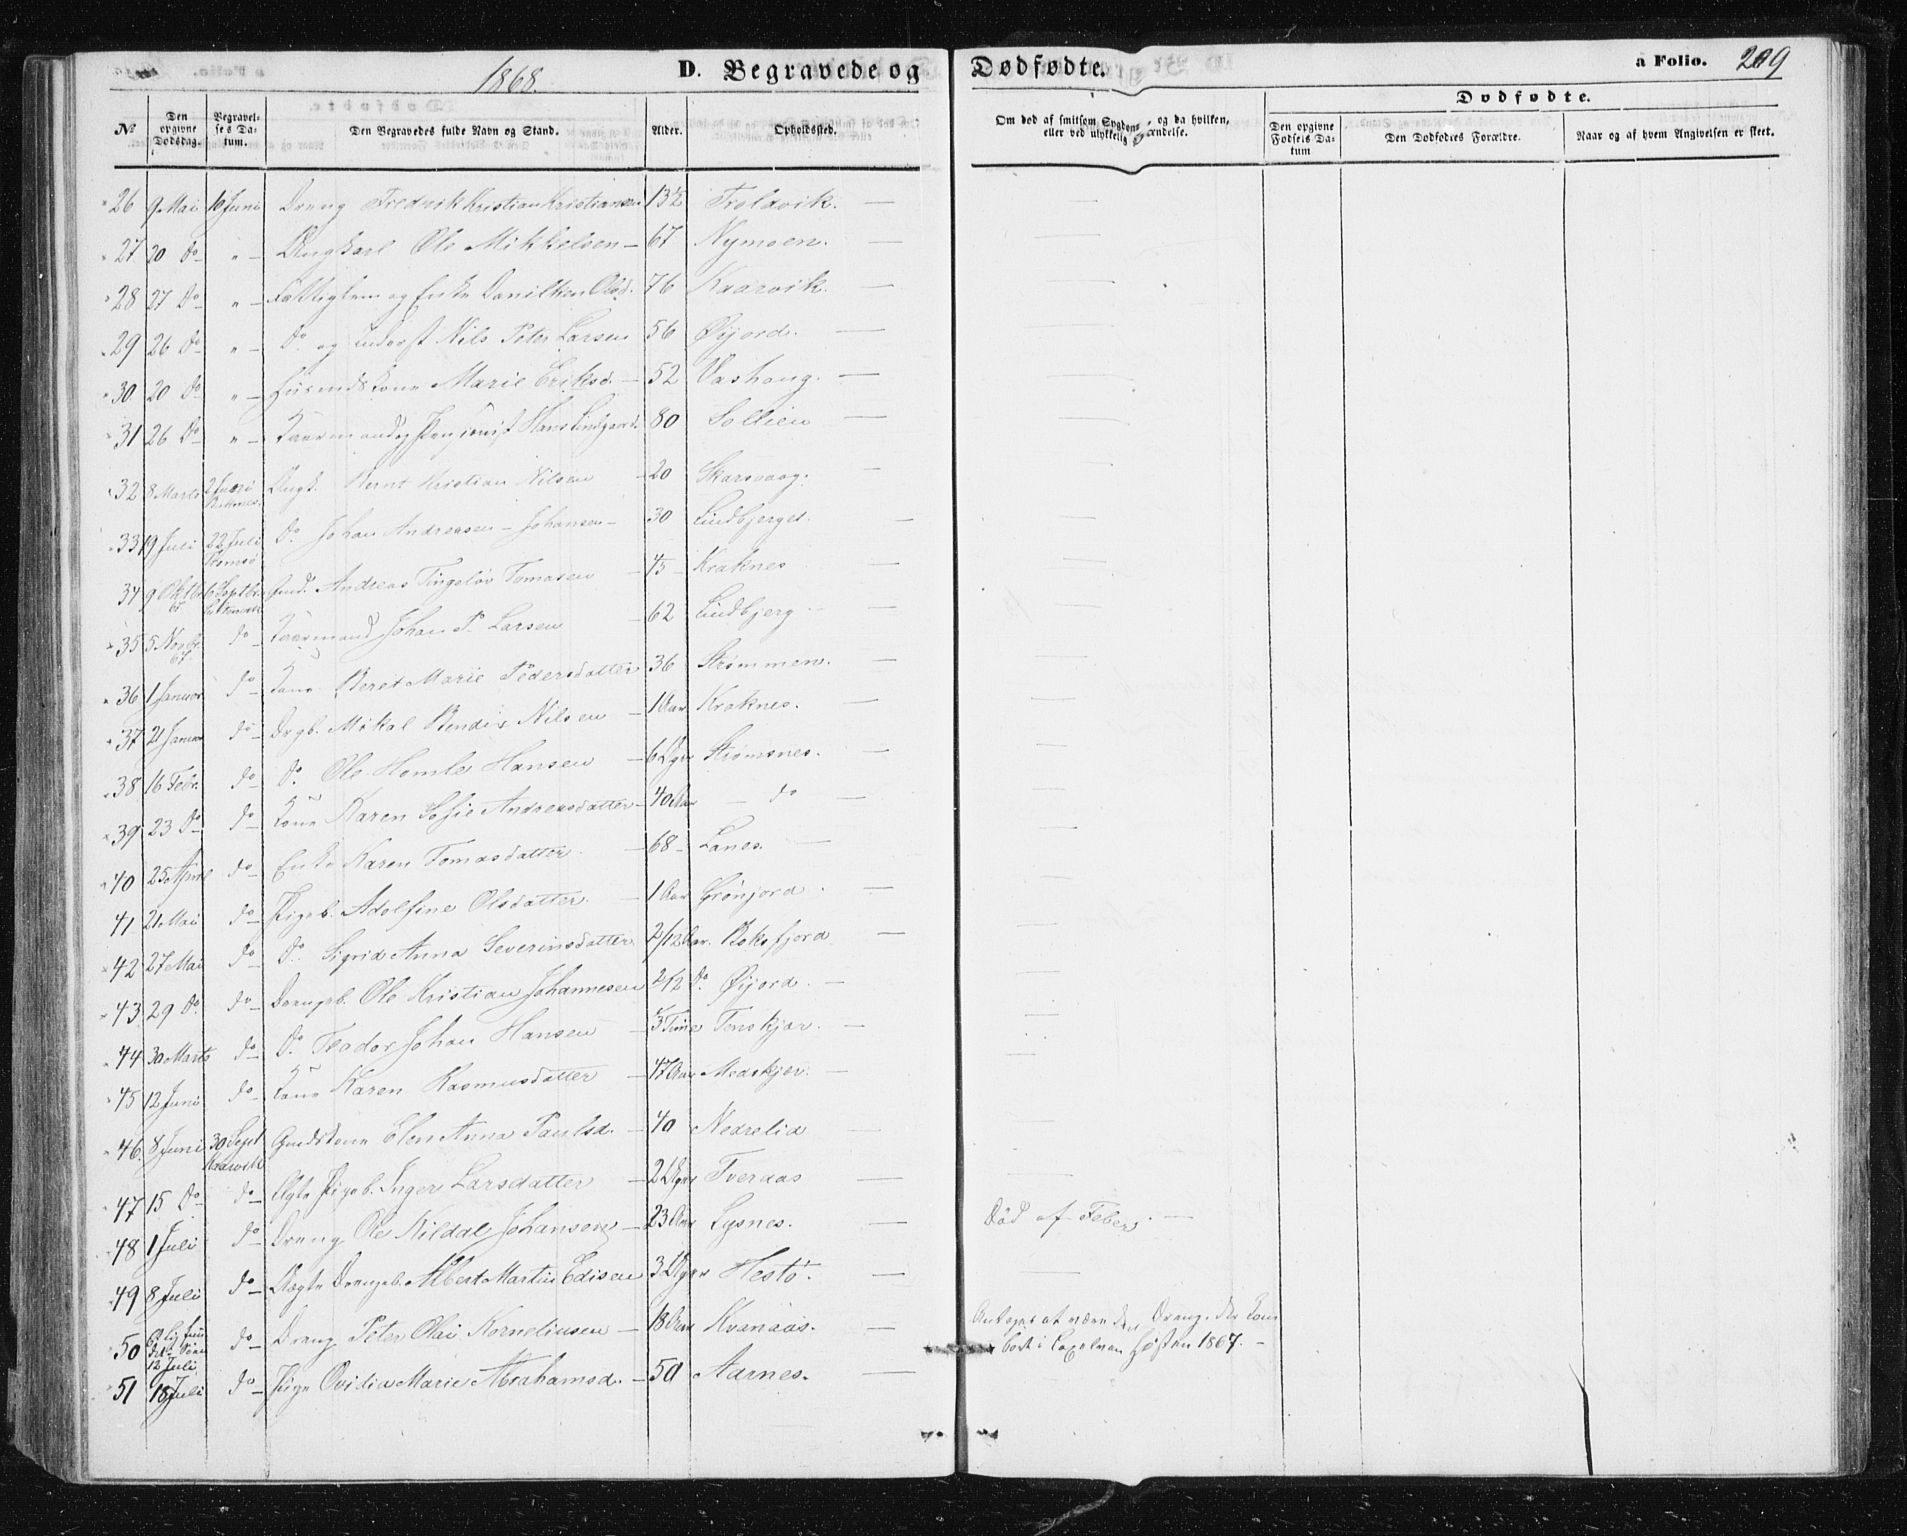 1868. D. Begravede og Dødfødte. a Folio. 209
Dødfødte.
No Den opgivne Dødsdag. Begravelses Datum. Den Begravedes fulde Navn og Stand. Alder. Opholdssted. Om død af smitsom Sygdom, og da hvilken, eller ved ulykkelig Hændelse. Den opgivne Fødsels Datum Den Dødfødtes Forældre. Naar og af hvem Angivelsen er skeet.
26 9 Mai 16 Juni Dreng Fredrik Kristian Kristiansen 13½ Troldvik. —
27 20 do " — Ungkarl Ole Mikkelsen — 67 Nymoen. —
28 27 Do " — Fattiglem og Enke Danilken Olsd. 76 Kaarvik. —
29 26 do " — do og Inderst Nils Peter Larsen 56 Øyjord. —
30 20 do " — Husmandskone Marie Eriksd. — 52 Vashaug. —
31 26 Do " — Kaarmand og Pensionist Hans Lindgaard. 80 Sollien
32 8 Marts Ungk. Bernt Kristian Nilsen — 20 Skarsvaag.
33 19 Juli 22 Juli Tromsø do Johan Andreasen - Johansen — 30 Lindbjerget. —
34 9 Oktbr 67 6 Septbr Gmd. Andreas Tingeløv Tomasen — 45 — Kraknes —
35 5 Novbr. 67. do Kaarmand Johan P. Larsen — 62 Lindbjerg —
36 1 Januar do — Kone Beret Marie Pedersdatter 36 Strømmen. —
37 21 Januar do — Drgb. Mikal Bendix Nilsen — 1 Aar Kraknes. —
38 16 Febr. do — Do. Ole Homle Hansen — 6 Dgr Strømsnes. —
39 23 do do — Kone Karen Sofie Andreasdatter — 40 Aar — do —
40 25 April do — Enke Karen Tomasdatter. — 68 — Lanes. —
41 21 Mai do — Pigeb. Adolfine Olsdatter. — 1 Aar Grønjord. —
42 27 Mai do — Do. Sigrid Anna Severinsdatter 2/12 Aar. Bakefjord —
43 29 do. do — Drengeb. Ole Kristian Johannesen 2/12 Do. Øyjord. —
44 30 Marts do — Do. Teodor Johan Hansen — ⅓ Time Tenskjær. —
45 12 Juni do — Kone Karen Rasmusdatter — 47 Aar Medskjer. —
46 8 Juni 30 Sept Kaarvik Gmdskone Elen Anna Paulsd. — 40 Nedrelid —
47 15 do do — Ægte Pigeb. Inger Larsdatter — 2 Dgr Tveraas
48 1 Juli do — Dreng Ole Kildal Johansen — 23 Aar Lysnes. — Død af Feber. —
49 8 Juli do — Uægte Drengeb. Albert Martin Edisen 3 Dgr Hestø. —
50 12 Juli do — Dreng Peter Olai Korneliusen — 18 Aar Kvanaas. — Antages at være den Dreng, der kom bort i Høsten 1867. —
51 18 Juli do — Pige Ovidia Marie Abrahamsd. — 50 Aarnes. —